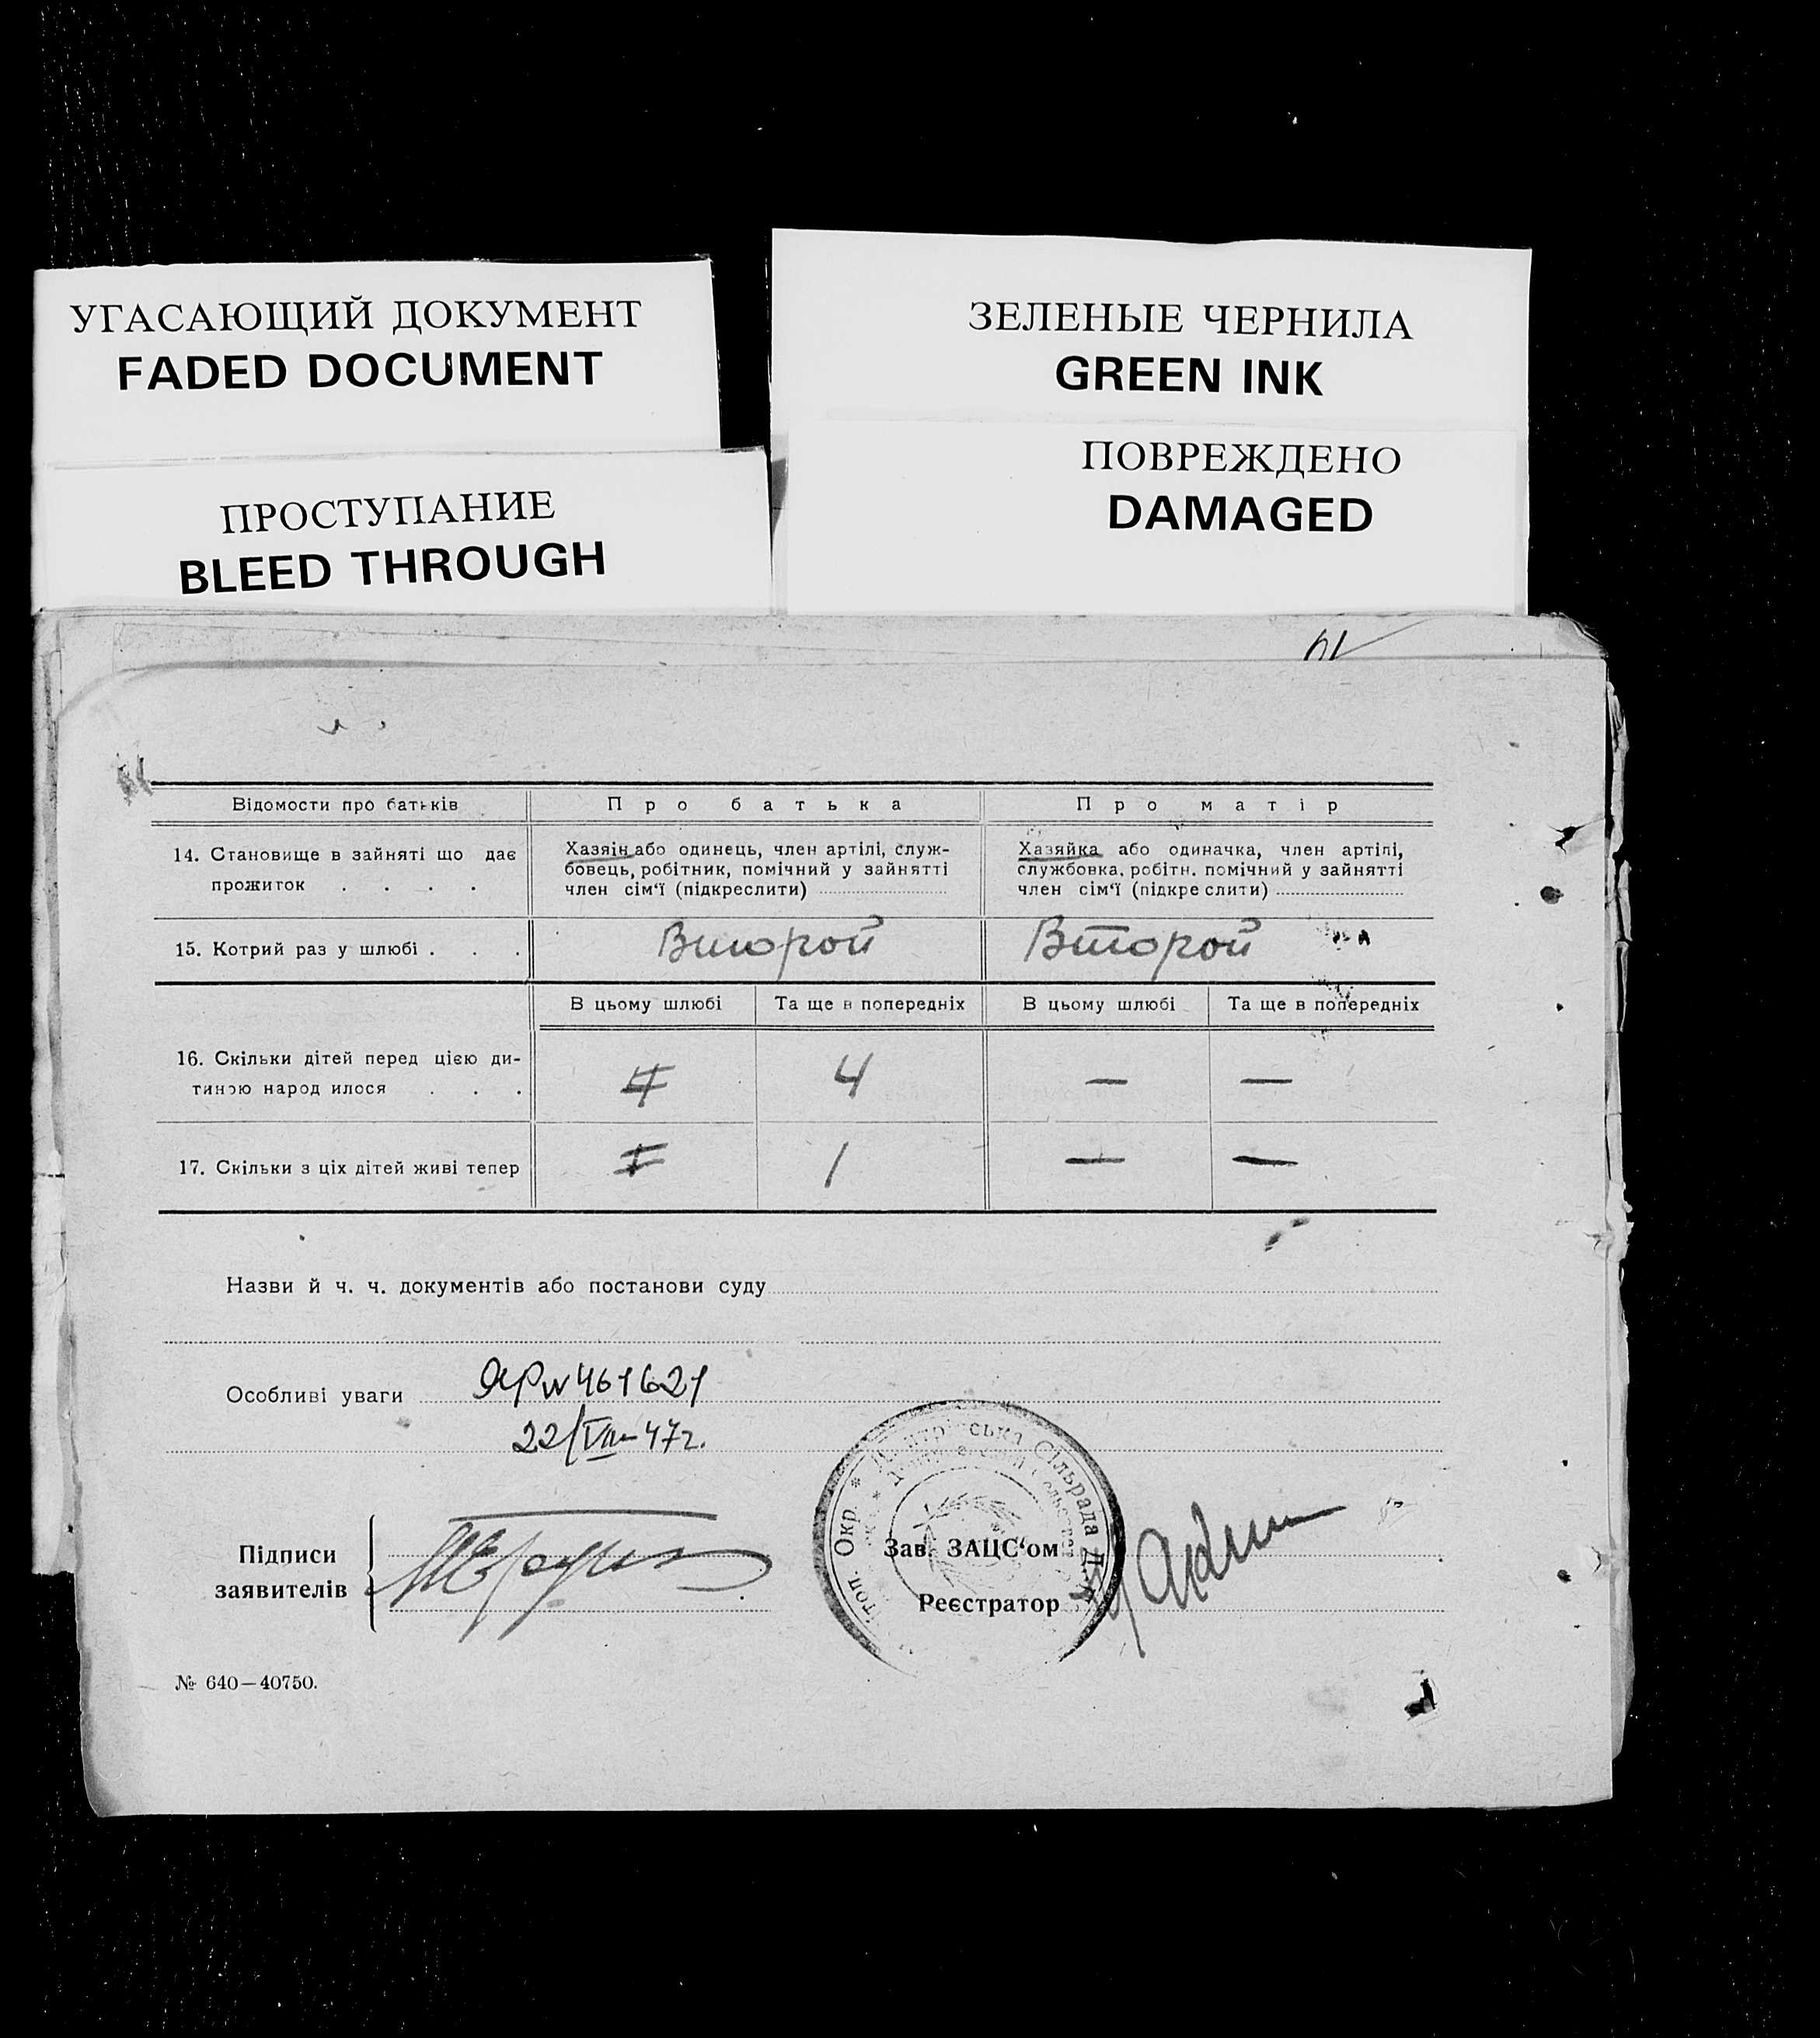 УГАСАЮЩИЙ ДОКУМЕНТ
FADED DOCUMENT
ЗЕЛЕНЫЕ ЧЕРНИЛА
GREEN INK
ПРОСТУПАНИЕ
BLEED THROUGH
ПОВРЕЖДЕНО
DAMAGED
Відомости про батьків
Про батька
Про матір
14. Становище в зайняті що дає
прожиток . . . .
Хазяін або одинець, член артілі, служ-
бовець, робітник, помічний у зайнятті
член сім‘ї (підкреслити)
Хазяйка або одиначка, член артілі,
службовка, робітн. помічний у зайнятті
член сім‘ї (підкреслити)
15. Котрий раз у шлюбі . . .
Второй
Второй
В цьому шлюбі
Та ще в попередніх
В цьому шлюбі
Та ще в попередніх
16. Скільки дітей перед цією ди-
тиною народилося . . .
4
4
—
—
17. Скільки з ціх дітей живі тепер
1
—
—
Назви й ч. ч. документів або постанови суду
Особливі уваги
461621
22/VIII-47г.
Підписи
заявителів
Окр. * Сільрада
Зав. ЗАЦС‘ом
Реєстратор
№ 640—40750.